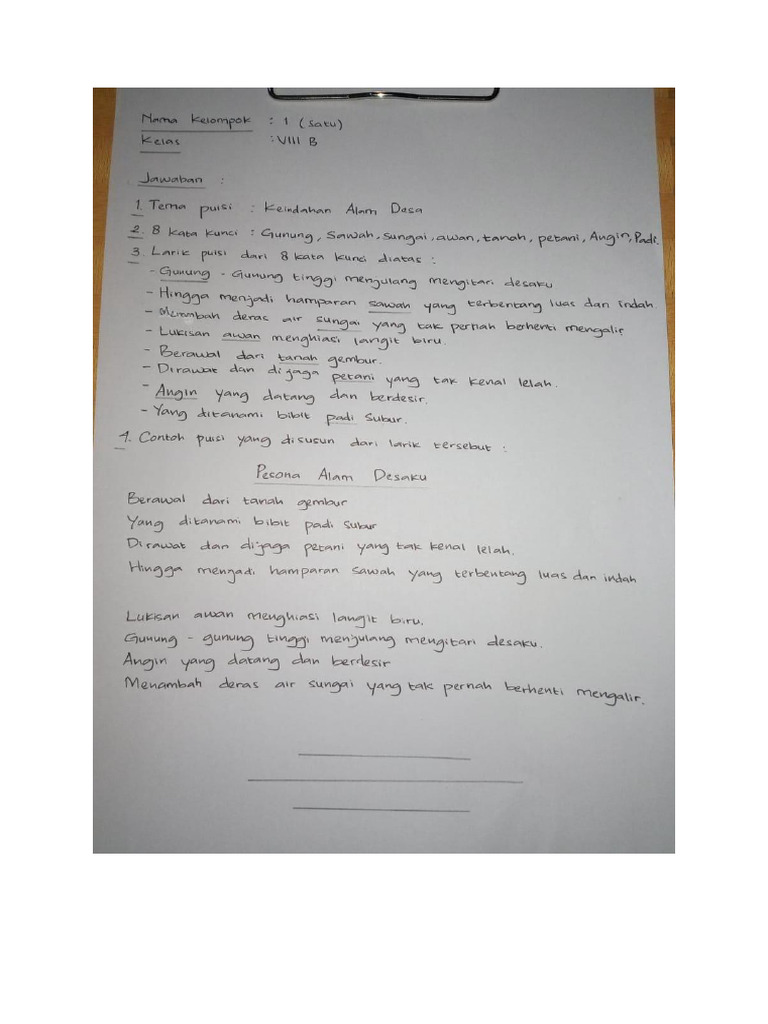 Nama Kelompok : 1 (Satu)
Kelas : VIII B
Jawaban :
1. Tema puisi : Keindahan Alam Desa
2. 8 kata kunci : Gunung, Sawah, sungai, awan, tanah, petani, Angin, Padi.
3. Larik puisi dari 8 kata kunci diatas :
- Gunung - Gunung tinggi menjulang mengitari desaku
- Hingga menjadi hamparan sawah yang terbentang luas dan indah
- Menambah deras air sungai yang tak pernah berhenti mengalir
- Lukisan awan menghiasi langit biru.
- Berawal dari tanah gembur.
- Dirawat dan dijaga petani yang tak kenal lelah.
- Angin yang datang dan berdesir.
- Yang ditanami bibit padi subur.
4. Contoh puisi yang disusun dari larik tersebut :
Pesona Alam Desaku
Berawal dari tanah gembur
Yang ditanami bibit padi subur
Dirawat dan dijaga petani yang tak kenal lelah.
Hingga menjadi hamparan sawah yang terbentang luas dan indah
Lukisan awan menghiasi langit biru.
Gunung - gunung tinggi menjulang mengitari desaku.
Angin yang datang dan berdesir
Menambah deras air sungai yang tak pernah berhenti mengalir.